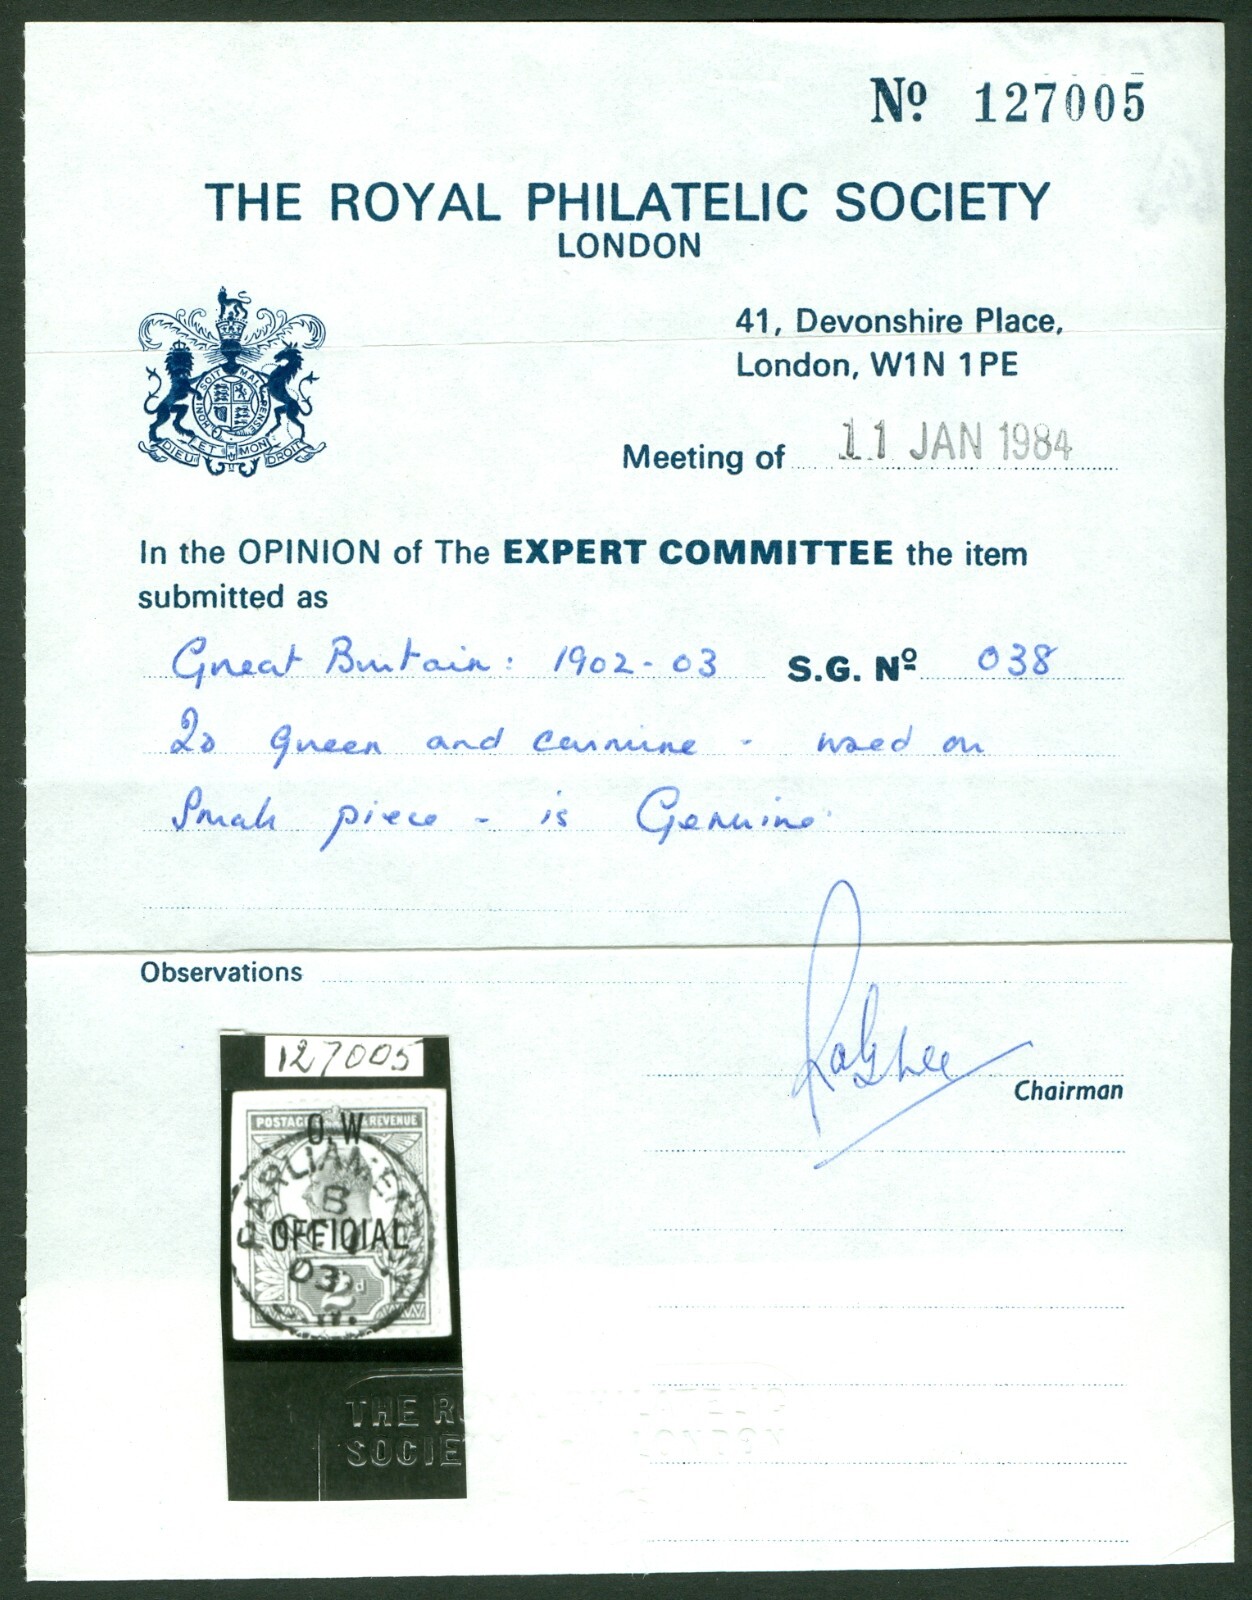 Nº 127005
THE ROYAL PHILATELIC SOCIETY
LONDON
41, Devonshire Place,
London, W1N 1PE
SOIT MAL
HONI
PENSE
ET MON
DIEU DROIT
Meeting of 11 JAN 1984
In the OPINION of The EXPERT COMMITTEE the item
submitted as
Great Britain: 1902-03 S.G. Nº 038
2d green and carmine - used on
small piece - is Genuine.
Observations
Chairman
127005
POSTAGE & REVENUE
O.W
PARLIAMENT
B
OFFICIAL
03
2d
THE R
SOCIE